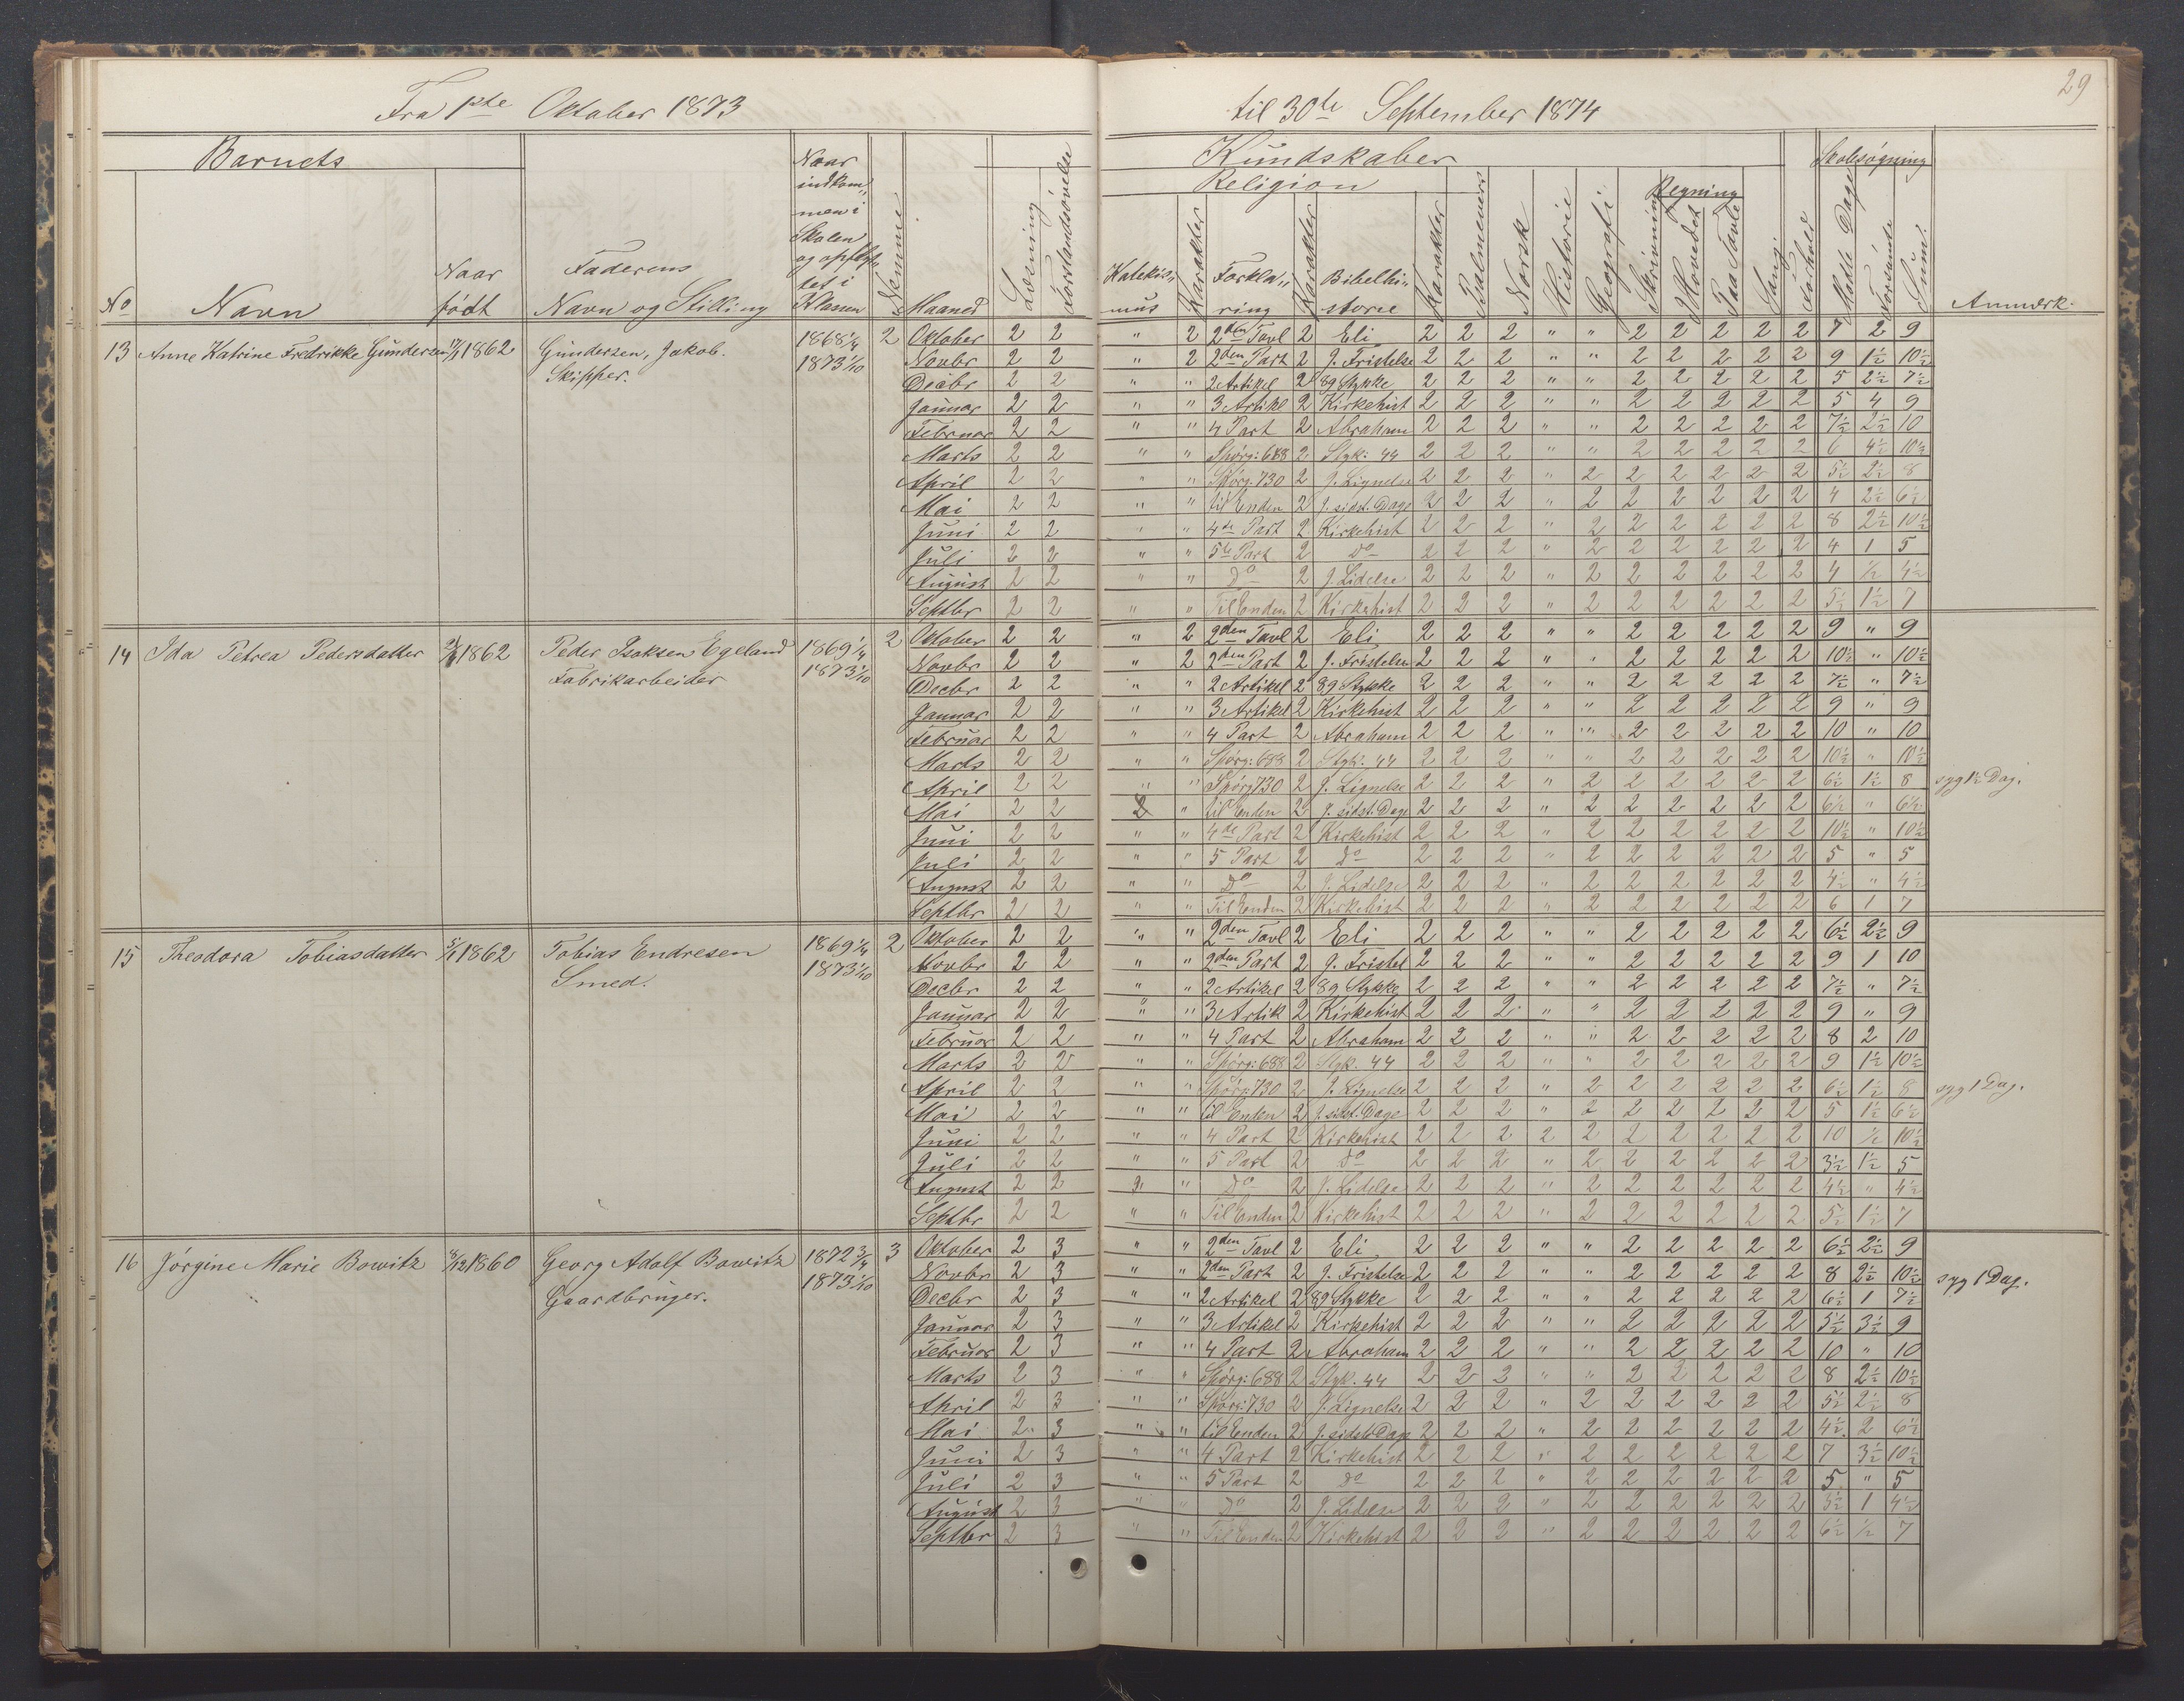 29
Fra 1ste Oktober 1873 til 30te September 1874
Barnets
Kundskaber
Skolesøgning
Religion
Regning
No Navn Naar født Faderens Navn og Stilling Naar indkom„ men i Skolen og opflyt„ tet i Klassen Nemme Maaned Læsning Forstandsøvelse Katekis„ mus Karakter Forkla„ ring Karakter Bibelhi„ storie Karakter Psalmevers Norsk Historie Geografi Skrivning I Hovedet Paa Tavle Sang Forhold Mødte Dage Forsømte Sum. Anmærk.
13 Anne Katrine Fredrikke Gundersen 17/1 1862 Gundersen, Jakob. Skipper. 1868 1/4 1873 1/10 2
Oktober 2 2 " 2 2den Tavl 2 Eli 2 2 2 " " 2 2 2 2 2 7 2 9
Novbr 2 2 " 2 2den Part 2 J. Fristelse 2 2 2 " " 2 2 2 2 2 9 1½ 10½
Decbr 2 2 " " 2 Artikel 2 89 Stykke 2 2 2 " " 2 2 2 2 2 5 2½ 7½
Januar 2 2 " " 3 Artikel 2 Kirkehist 2 2 2 " " 2 2 2 2 2 5 4 9
Februar 2 2 " " 4 Part 2 Abraham 2 2 2 " " 2 2 2 2 2 7½ 2½ 10
Marts 2 2 " " Spørg: 688 2 Styk: 44 2 2 2 " " 2 2 2 2 2 6 4½ 10½
April 2 2 " " Spørg. 730 2 J. Lignelse 2 2 2 " 2 2 2 2 2 2 5½ 2½ 8
Mai 2 2 " " til Enden 2 J. sidst. Dage 2 2 2 " 2 2 2 2 2 2 4 2½ 6½
Juni 2 2 " " 4de Part 2 Kirkehist 2 2 2 " 2 2 2 2 2 2 8 2½ 10½
Juli 2 2 " " 5te Part 2 Do 2 2 2 " 2 2 2 2 2 2 4 1 5
August 2 2 " " Do 2 J. Lidelse 2 2 2 " 2 2 2 2 2 2 4 ½ 4½
Septbr 2 2 " " Til Enden 2 Kirkehist 2 2 2 " 2 2 2 2 2 2 5½ 1½ 7
14 Ida Petrea Pedersdatter 1862 Peder Isaksen Egeland Fabrikarbeider 1869 1/4 1873 1/10 2
Oktober 2 2 " 2 2den Tavl 2 Eli 2 2 2 " " 2 2 2 2 2 9 " 9
Novbr 2 2 " 2 2den Part 2 J. Fristelse 2 2 2 " " 2 2 2 2 2 10½ " 10½
Decbr 2 2 " " 2 Artikel 2 89 Stykke 2 2 2 " " 2 2 2 2 2 7½ " 7½
Januar 2 2 " " 3 Artikel 2 Kirkehist 2 2 2 " " 2 2 2 2 2 9 " 9
Februar 2 2 " " 4 Part 2 Abraham 2 2 2 " " 2 2 2 2 2 10 " 10
Marts 2 2 " " Spørg: 688 2 Styk: 44 2 2 2 " " 2 2 2 2 2 10½ " 10½
April 2 2 " " Spørg 730 2 J. Lignelse 2 2 2 " 2 2 2 2 2 2 6½ 1½ 8 syg 1½ Dag.
Mai 2 2 2 " til Enden 2 J. sidst. Dage 2 2 2 " 2 2 2 2 2 2 6½ " 6½
Juni 2 2 " " 4de Part 2 Kirkehist 2 2 2 " 2 2 2 2 2 2 10½ " 10½
Juli 2 2 " " 5 Part 2 do 2 2 2 " 2 2 2 2 2 2 5 " 5
August 2 2 " " Do 2 J. Lidelse 2 2 2 " 2 2 2 2 2 2 4½ " 4½
Septbr 2 2 " " Til Enden 2 Kirkehist 2 2 2 " 2 2 2 2 2 2 6 1 7
15 Theodora Tobiasdatter 5/1 1862 Tobias Endresen Smed. 1869 1/4 1873 1/10 2
Oktober 2 2 " " 2den Tavl 2 Eli 2 2 2 " " 2 2 2 2 2 6½ 2½ 9
Novbr 2 2 " " 2den Part 2 J. Fristel 2 2 2 " " 2 2 2 2 2 9 1 10
Decbr 2 2 " " 2 Artikel 2 89 Stykke 2 2 2 " " 2 2 2 2 2 7½ " 7½
Januar 2 2 " " 3 Artik 2 Kirkehist 2 2 2 " " 2 2 2 2 2 9 " 9
Februar 2 2 " " 4 Part 2 Abraham 2 2 2 " " 2 2 2 2 2 8 2 10
Marts 2 2 " " Spørg: 688 2 Styk. 44 2 2 2 " " 2 2 2 2 2 9 1½ 10½
April 2 2 " " Spørg 730 2 J. Lignelse 2 2 2 " 2 2 2 2 2 2 6½ 1½ 8 syg 1 Dag.
Mai 2 2 " " til Enden 2 J. sidst. Dage 2 2 2 " 2 2 2 2 2 2 5 1½ 6½
Juni 2 2 " " 4 Part 2 Kirkehist 2 2 2 2 2 2 2 2 2 2 10 ½ 10½
Juli 2 2 " " 5 Part 2 do 2 2 2 " 2 2 2 2 2 2 3½ 1½ 5
August 2 2 " Do 2 J. Lidelse 2 2 2 " 2 2 2 2 2 2 4½ " 4½
Septbr 2 2 " " Til Enden 2 Kirkehist 2 2 2 " 2 2 2 2 2 2 5½ 1½ 7
16 Jørgine Marie Bowitz 8/12 1860 Georg Adolf Bowitz Gaardbruger. 1872 3/4 1873 1/10 3
Oktober 2 3 " " 2den Tavl 2 Eli 2 2 2 " " 2 2 2 2 2 6½ 2½ 9
Novbr 2 3 " " 2den Part 2 J. Fristelse 2 2 2 " " 2 2 2 2 2 8 2½ 10½ syg 1 Dag.
Decbr 2 3 " " 2 Artikel 2 89 Stykke 2 2 2 " " 2 2 2 2 2 6½ 1 7½
Januar 2 3 " " 3 Artikel 2 Kirkehist 2 2 2 " " 2 2 2 2 2 5½ 3½ 9
Februar 2 3 " " 4 Part 2 Abraham 2 2 2 " " 2 2 2 2 2 10 " 10
Marts 2 3 " " Spørg: 688 2 Styk. 44 2 2 2 " " 2 2 2 2 2 8 2½ 10½
April 2 3 " " Spørg: 730 2 J. Lignelse 2 2 2 " 2 2 2 2 2 2 5½ 2½ 8
Mai 2 3 " " til Enden 2 J. sidst Dage 2 2 2 " 2 2 2 2 2 2 4½ 2 6½
Juni 2 3 " " 4 Part 2 Kirkehist 2 2 2 " 2 2 2 2 2 2 7 3½ 10½
Juli 2 3 " " 5 Part 2 do 2 2 2 " 2 2 2 2 2 2 5 " 5
August 2 3 " " Do 2 J. Lidelse 2 2 2 " 2 2 2 2 2 2 3½ 1 4½
Septbr 2 3 " " Til Enden 2 Kirkehist 2 2 2 " 2 2 2 2 2 2 6½ ½ 7